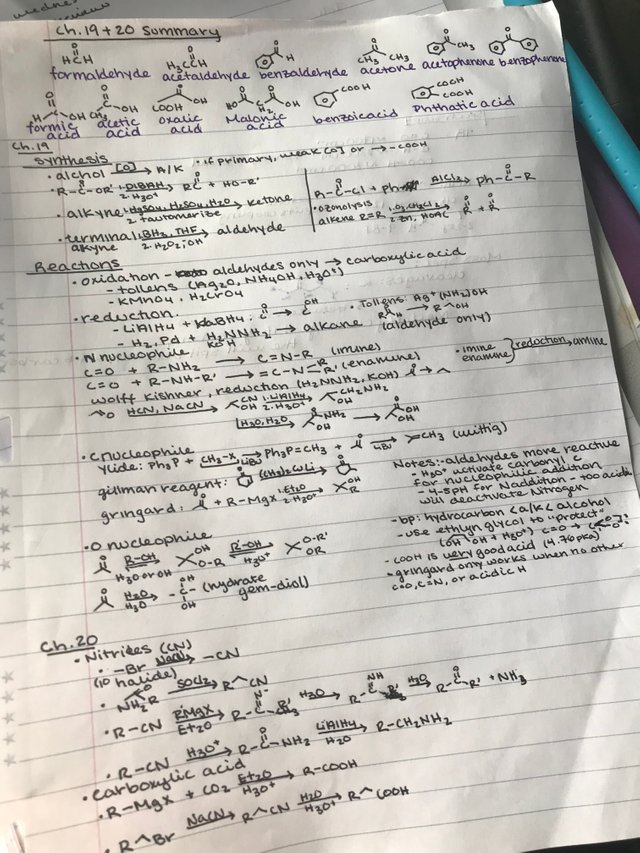 Ch. 19 + 20 Summary
formaldehyde acetaldehyde benzaldehyde acetone acetophenone benzophenone
formic acid acetic acid oxalic acid Malonic acid benzoic acid Phthatic acid
Ch.19
Synthesis
• alchol [O] → A/K • if primary, weak [O] or → -COOH
• R-C-OR' 1. DIBAH 2. H3O+ → RC + HO-R'
R-C-Cl + Ph AlCl3 → Ph-C-R
• alkyne 1. HgSO4, H2SO4, H2O 2. tautomerize → ketone
• ozonolysis
alkene R=R 1. O3, CH2Cl2 2. Zn, HOAc → R + R
• terminal alkyne 1. BH3, THF 2. H2O2, OH → aldehyde
Reactions
• oxidation - aldehydes only → carboxylic acid
- tollens (Ag2O, NH4OH, H3O+)
- KMnO4, H2CrO4
• reduction
• Tollens: Ag+ (NH2)OH
(aldehyde only)
- LiAlH4 + NaBH4: C → C
- H2, Pd + H2NNH2 → alkane
• N nucleophile
C=O + R-NH2 → C=N-R (imine)
C=O + R-NH-R' → =C-N-R R' (enamune)
• imine enamine } reduction → amine
wolff kishner, reduction (H2NNH2, KOH)
HCN, NaCN → CN OH 1. LiAlH4 2. H3O+ → CH2NH2 OH
H3O, H2O
• C nucleophile
Ylide: Ph3P + CH3-X LiBu → Ph3P=CH3 + LiBu → CH3 (wittig)
gillman reagent: (CH3)2CuLi
gringard: + R-MgX 1. Et2O 2. H3O+ → OH R
Notes: - aldehydes more reactive
- H3O+ activate carbonyl C
for nucleophilic addition
- 4-5pH for N addition - too acidic
will deactivate Nitrogen
- bp: hydrocarbon < a/k < alcohol
- use ethlyn glycol to "protect"
(OH OH + H3O+) C=O →
- COOH is very good acid (4.76 pKa)
- gringard only works when no other
C=O, C≡N, or acidic H
• O nucleophile
R-OH H3O or OH → OH O-R R'-OH H3O+ → O-R' OR
H2O H3O → -C- OH OH (hydrate gem-diol)
Ch.20
• Nitrides (CN)
• -Br NaCN → -CN
(1° halide)
• NH2R SOCl2 → R CN
• R-CN R'MgX Et2O → R-C- R' H3O → R-C-R' NH H3O → R-C-R' + NH3
• R-CN H3O+ → R-C-NH2 LiAlH4 H2O → R-CH2NH2
• carboxylic acid
• R-MgX + CO2 Et2O H3O+ → R-COOH
• R Br NaCN → R CN H2O H3O+ → R COOH